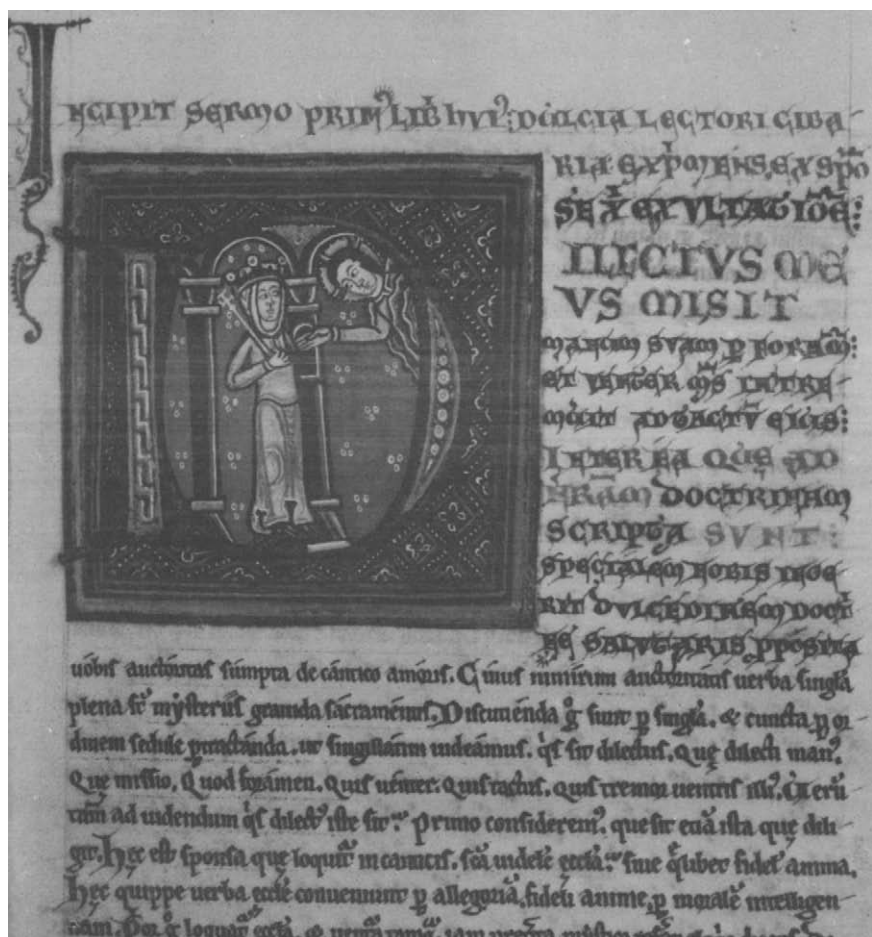 INCIPIT SERMO PRIM' LIB' HVI': DULCIA LECTORI CIBA-
RIA EXPMENS, EX SPO
SE EXULTATIOE:
DILECTUS ME
VS MISIT
MANUM SVAM P FORAM:
ET VENTER MS INTRE-
MUIT AD TACTV EIUS:
INTER EA QUE AD
NRAM DOCTRINAM
SCRIPTA SUNT:
SPECIALEM NOBIS INGE
RIT DULCEDINEM DOCT
NE SALUTARIS, PPOSITA
uobis auctoritas sumpta de cantico amoris. Cuius nimirum auctoritatis uerba singla
plena st mysteriis grauida sacramentis. Discutienda g sunt p singla. & cuncta p or
dinem sedule ptractanda. ut singillatim uideamus. qs sit dilectus. Que dilecti man'.
Que missio. Quod foramen. Quis uenter. Quis tactus. Quis tremor uentris illi'. Ueru
tam ad uidendum qs dilect' iste sit: Primo considerem', que sit etia ista que dili
git. Hec est sponsa que loquit in canticis. sca uidelic ecclia: siue quibet fidel' anima.
Hec quippe uerba ecclie conueniunt p allegoria, fideli anime, p morale intelligen
tiam.